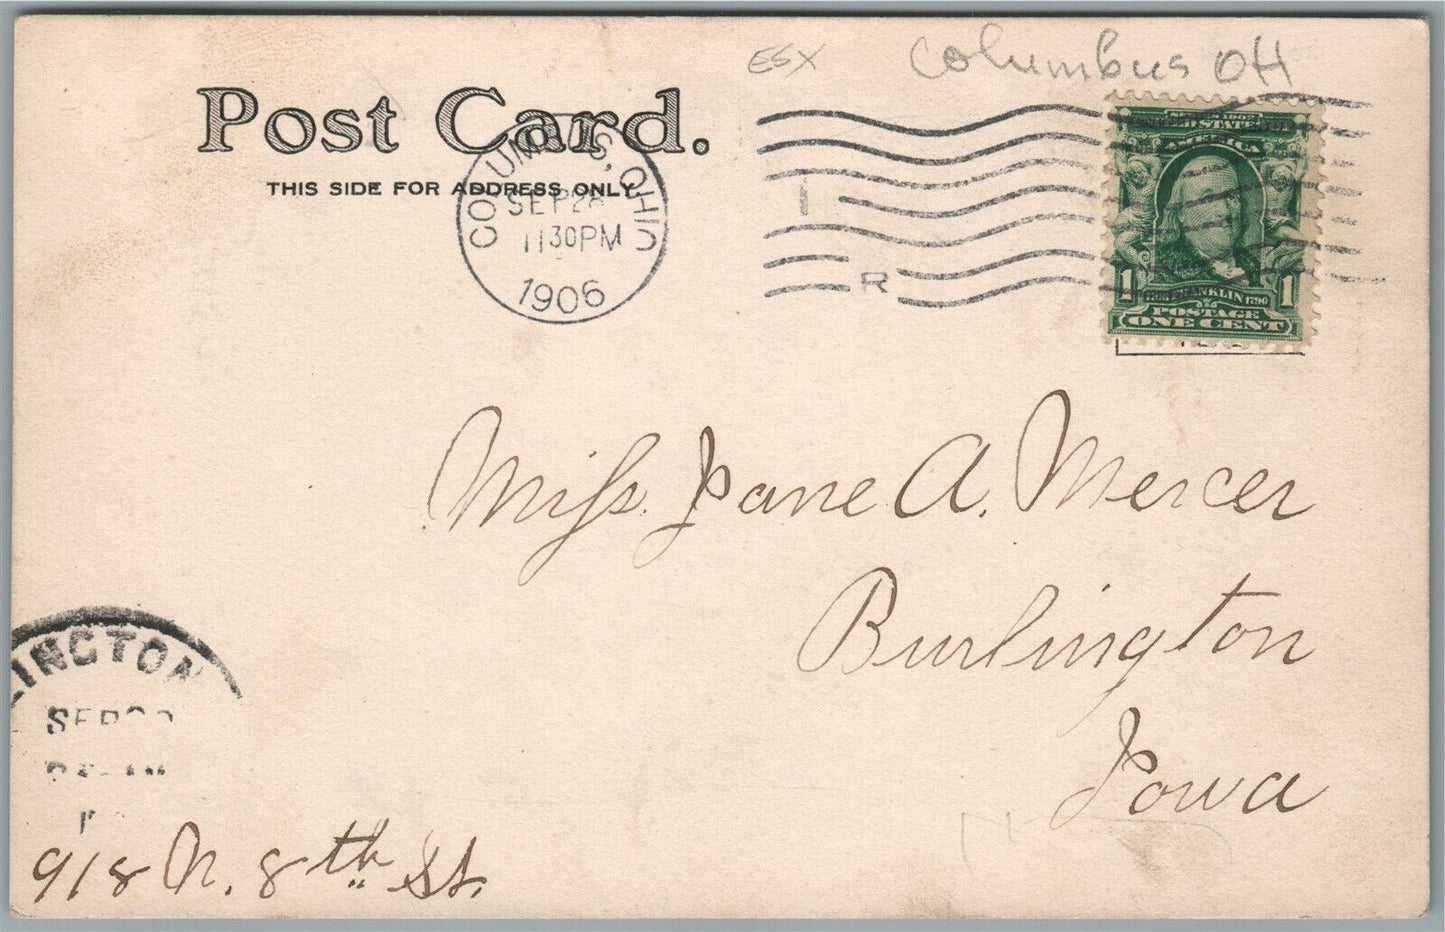 ESX Columbus OH
Post Card.
THIS SIDE FOR ADDRESS ONLY.
COLUMBUS, OHIO
SEP 28
1130PM
1906
R
UNITED STATES OF
AMERICA
1 FRANKLIN 1790 1
POSTAGE
ONE CENT
Miss. Jane A. Mercer
Burlington
Iowa
LINGTON
SEP
918 N. 8th St.